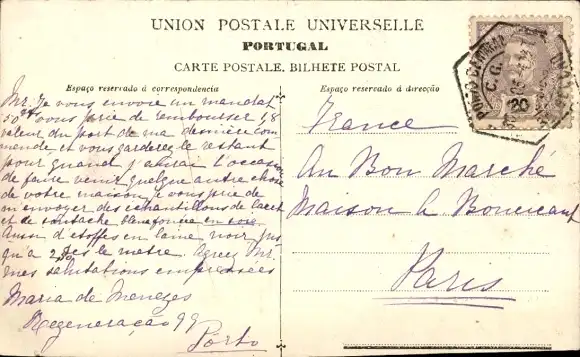 UNION POSTALE UNIVERSELLE
PORTUGAL
CARTE POSTALE. BILHETE POSTAL
Espaço reservado á correspondencia
Mr. Je vous envoie un mandat
50 vous prie de rembourser
valeur du port de ma dernière com
mende et vous garderez le restant
pour quand j'aurai l'occasion
de faire venir quelque autre chose
de votre maison. Je vous prie de
m'envoyer des échantillons de lacet
et de soutache bleu foncé en soie
Aussi d'étoffes en laine noir jus
qu'a le mètre. Agreez Mr.
mes salutations empressées
Maria de Menezes
Regeneração 99
Porto
Espaço reservado á direcção
France
Au Bon Marché
Maison A. Boucicaut
Paris
PORTO CENTRAL
C. G.
05
20